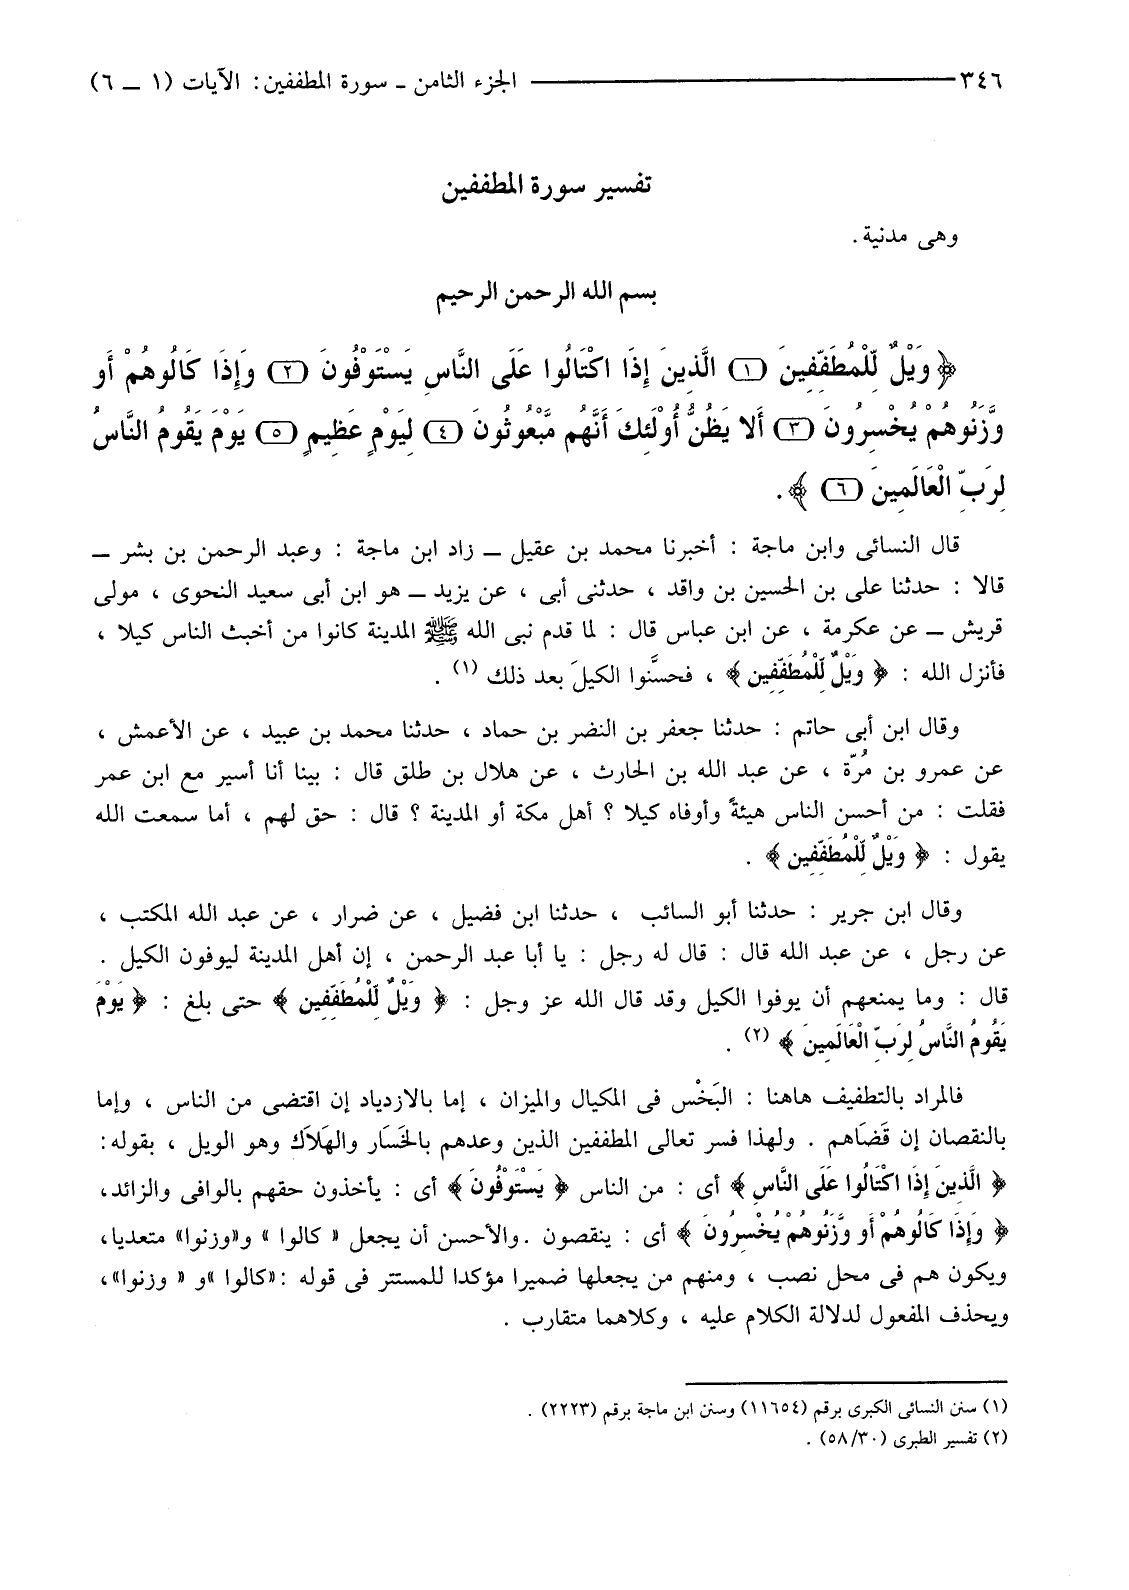 ٣٤٦ الجزء الثامن ـ سورة المطففين: الآيات (١ ـ ٦)
تفسير سورة المطففين
وهى مدنية.
بسم الله الرحمن الرحيم
﴿ وَيْلٌ لِّلْمُطَفِّفِينَ (١) الَّذِينَ إِذَا اكْتَالُوا عَلَى النَّاسِ يَسْتَوْفُونَ (٢) وَإِذَا كَالُوهُمْ أَو
وَّزَنُوهُمْ يُخْسِرُونَ (٣) أَلا يَظُنُّ أُوْلَئِكَ أَنَّهُم مَّبْعُوثُونَ (٤) لِيَوْمٍ عَظِيمٍ (٥) يَوْمَ يَقُومُ النَّاسُ
لِرَبِّ الْعَالَمِينَ (٦) ﴾.
قال النسائى وابن ماجة : أخبرنا محمد بن عقيل ـ زاد ابن ماجة : وعبد الرحمن بن بشر ـ
قالا : حدثنا على بن الحسين بن واقد ، حدثنى أبى ، عن يزيد ـ هو ابن أبى سعيد النحوى ، مولى
قريش ـ عن عكرمة ، عن ابن عباس قال : لما قدم نبى الله ﷺ المدينة كانوا من أخبث الناس كيلا ،
فأنزل الله : ﴿ وَيْلٌ لِّلْمُطَفِّفِين ﴾ ، فحسَّنوا الكيلَ بعد ذلك (١) .
وقال ابن أبى حاتم : حدثنا جعفر بن النضر بن حماد ، حدثنا محمد بن عبيد ، عن الأعمش ،
عن عمرو بن مُرّة ، عن عبد الله بن الحارث ، عن هلال بن طلق قال : بينا أنا أسير مع ابن عمر
فقلت : من أحسن الناس هيئةً وأوفاه كيلا ؟ أهل مكة أو المدينة ؟ قال : حق لهم ، أما سمعت الله
يقول : ﴿ وَيْلٌ لِّلْمُطَفِّفِين ﴾ .
وقال ابن جرير : حدثنا أبو السائب ، حدثنا ابن فضيل ، عن ضرار ، عن عبد الله المكتب ،
عن رجل ، عن عبد الله قال : قال له رجل : يا أبا عبد الرحمن ، إن أهل المدينة ليوفون الكيل .
قال : وما يمنعهم أن يوفوا الكيل وقد قال الله عز وجل : ﴿ وَيْلٌ لِّلْمُطَفِّفِين ﴾ حتى بلغ : ﴿ يَوْمَ
يَقُومُ النَّاسُ لِرَبِّ الْعَالَمِينَ ﴾ (٢) .
فالمراد بالتطفيف هاهنا : البَخْس فى المكيال والميزان ، إما بالازدياد إن اقتضى من الناس ، وإما
بالنقصان إن قَضَاهم . ولهذا فسر تعالى المطففين الذين وعدهم بالخَسَار والهَلاَك وهو الويل ، بقوله:
﴿ الَّذِينَ إِذَا اكْتَالُوا عَلَى النَّاسِ ﴾ أى : من الناس ﴿ يَسْتَوْفُونَ ﴾ أى : يأخذون حقهم بالوافى والزائد،
﴿ وَإِذَا كَالُوهُمْ أَو وَّزَنُوهُمْ يُخْسِرُونَ ﴾ أى : ينقصون . والأحسن أن يجعل « كالوا » و«وزنوا» متعديا،
ويكون هم فى محل نصب ، ومنهم من يجعلها ضميرا مؤكدا للمستتر فى قوله :«كالوا »و « وزنوا»،
ويحذف المفعول لدلالة الكلام عليه ، وكلاهما متقارب .
(١) سنن النسائى الكبرى برقم (١١٦٥٤) وسنن ابن ماجة برقم (٢٢٢٣) .
(٢) تفسير الطبرى (٥٨/٣٠) .